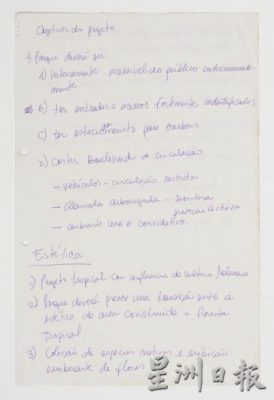 Objetivos do projeto
1) Parque deverá ser
A) inteiramente acessível ao público
B) ter entradas e acessos fortemente identificados
C) ter estacionamento para ônibus
D) conter boulevard de circulação
– veículos – circulação restrita
– Alameda arborizada – sombra
proteção à chuva
– ambiente leve e convidativo.
Estética
1) Projeto tropical com influência da cultura Malasiana
2) Parque deverá prever uma transição entre a
estética da área construída e floresta
tropical
3) Coleção de espécies nativas e exibição
exuberante de flores
星洲日報